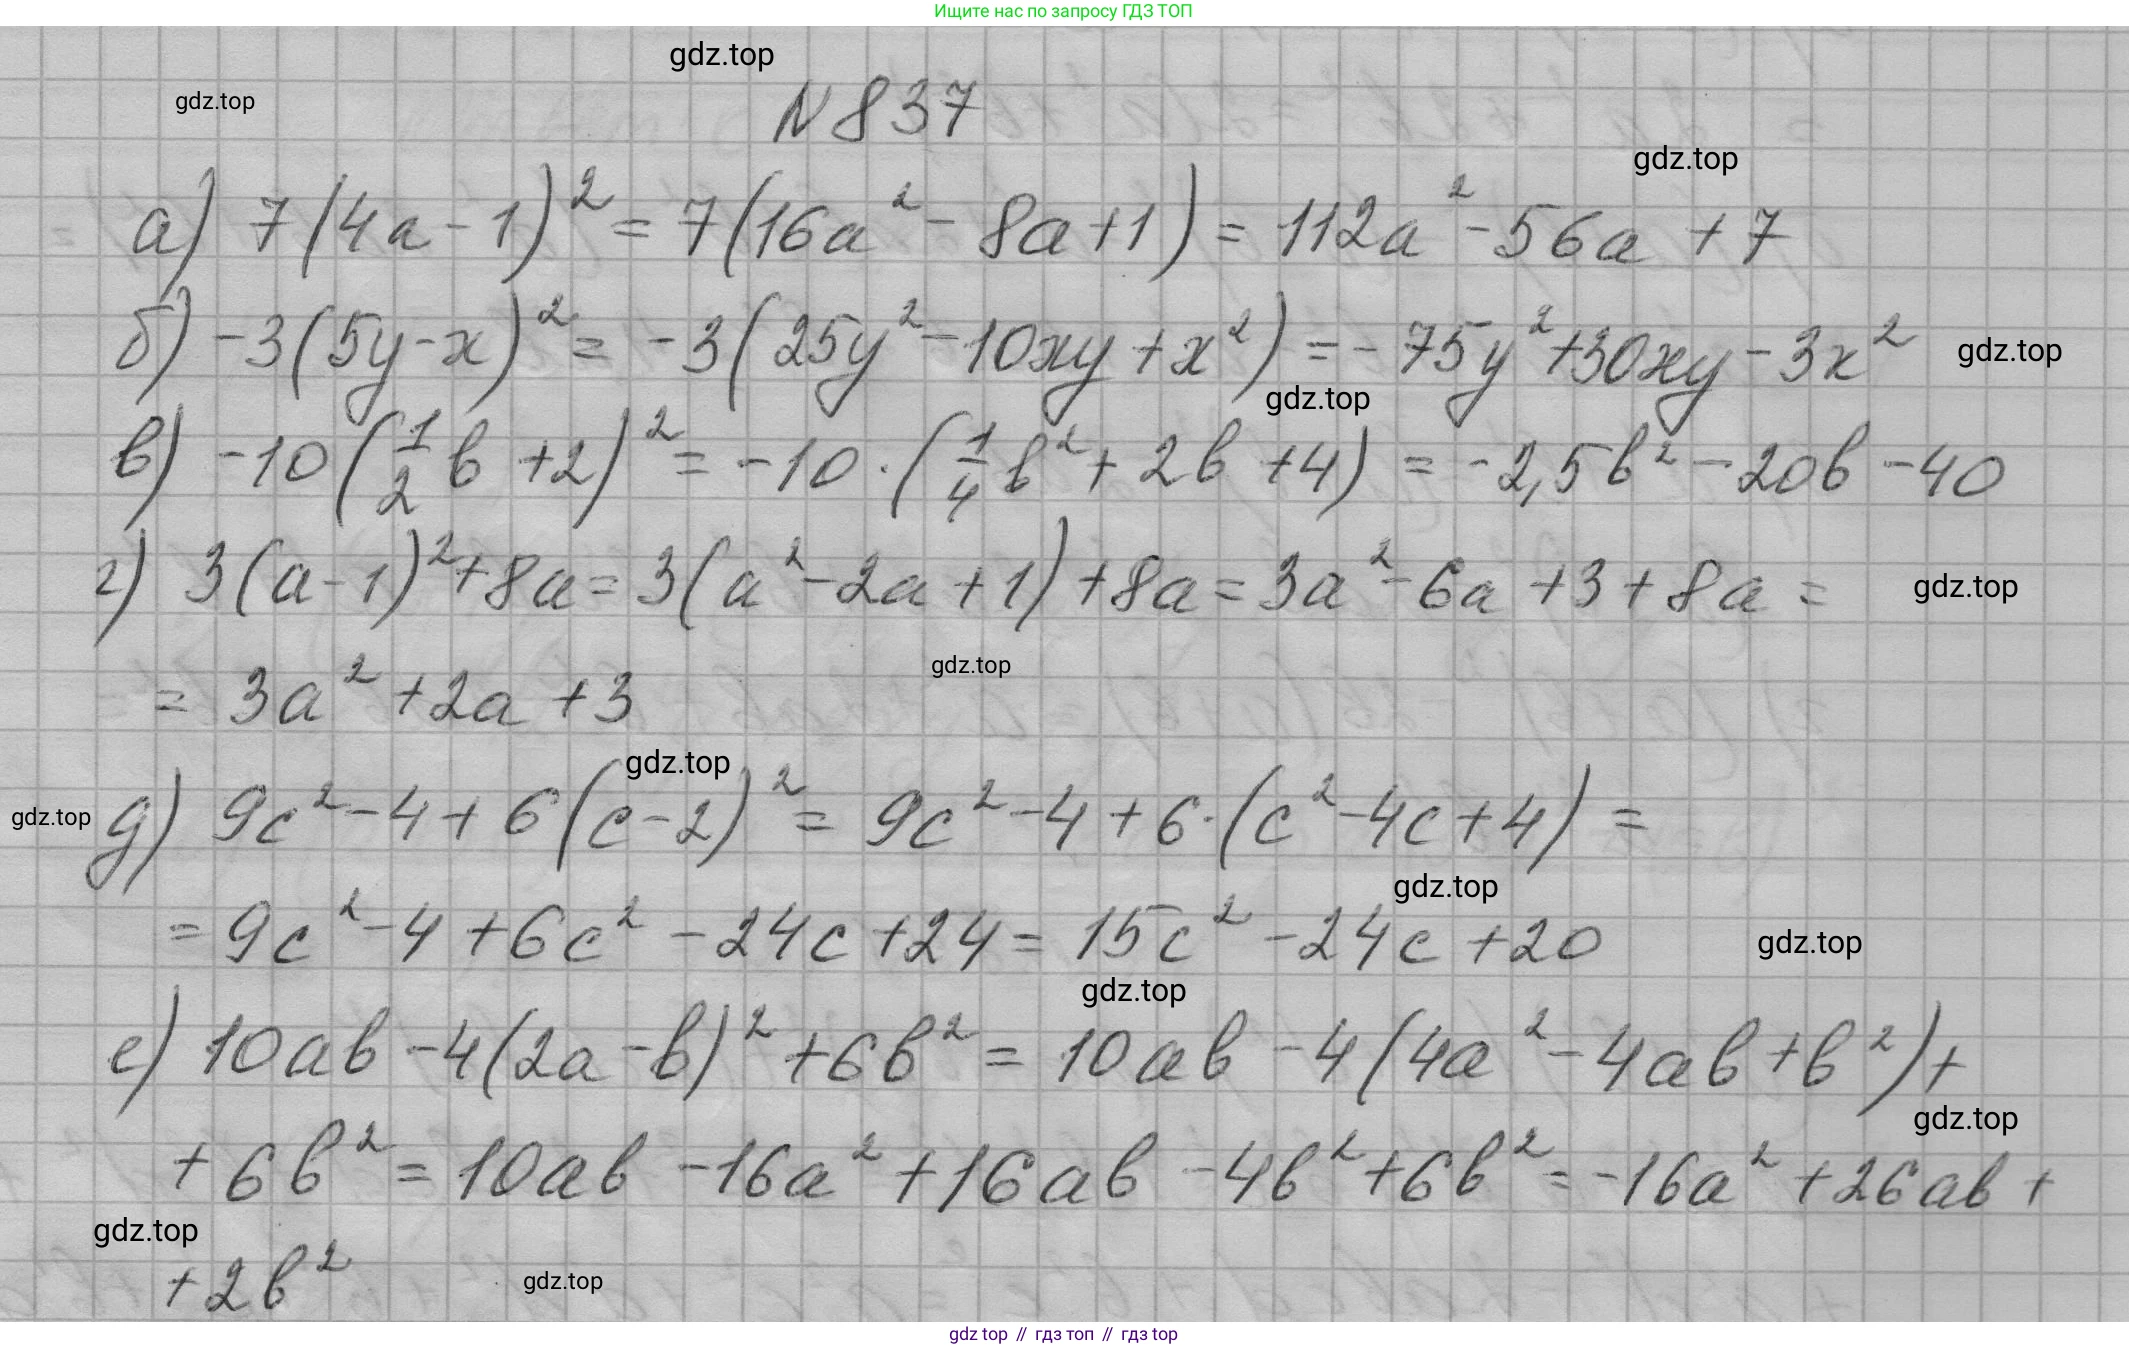 Ищите нас по запросу ГДЗ ТОП
gdz.top
gdz.top
№837
gdz.top
а) 7(4a-1)² = 7(16a² - 8a+1) = 112a² - 56a + 7
б) -3(5y-x)² = -3(25y² - 10xy + x²) = -75y² + 30xy - 3x²
gdz.top
gdz.top
в) -10(1/2 b + 2)² = -10·(1/4 b² + 2b + 4) = -2,5b² - 20b - 40
г) 3(a-1)² + 8a = 3(a² - 2a + 1) + 8a = 3a² - 6a + 3 + 8a =
gdz.top
gdz.top
= 3a² + 2a + 3
gdz.top
gdz.top
д) 9c² - 4 + 6(c-2)² = 9c² - 4 + 6·(c² - 4c + 4) =
gdz.top
= 9c² - 4 + 6c² - 24c + 24 = 15c² - 24c + 20
gdz.top
gdz.top
е) 10ab - 4(2a-b)² + 6b² = 10ab - 4(4a² - 4ab + b²) +
gdz.top
+ 6b² = 10ab - 16a² + 16ab - 4b² + 6b² = -16a² + 26ab +
gdz.top
+ 2b²
gdz.top
gdz top // гдз топ // гдз top